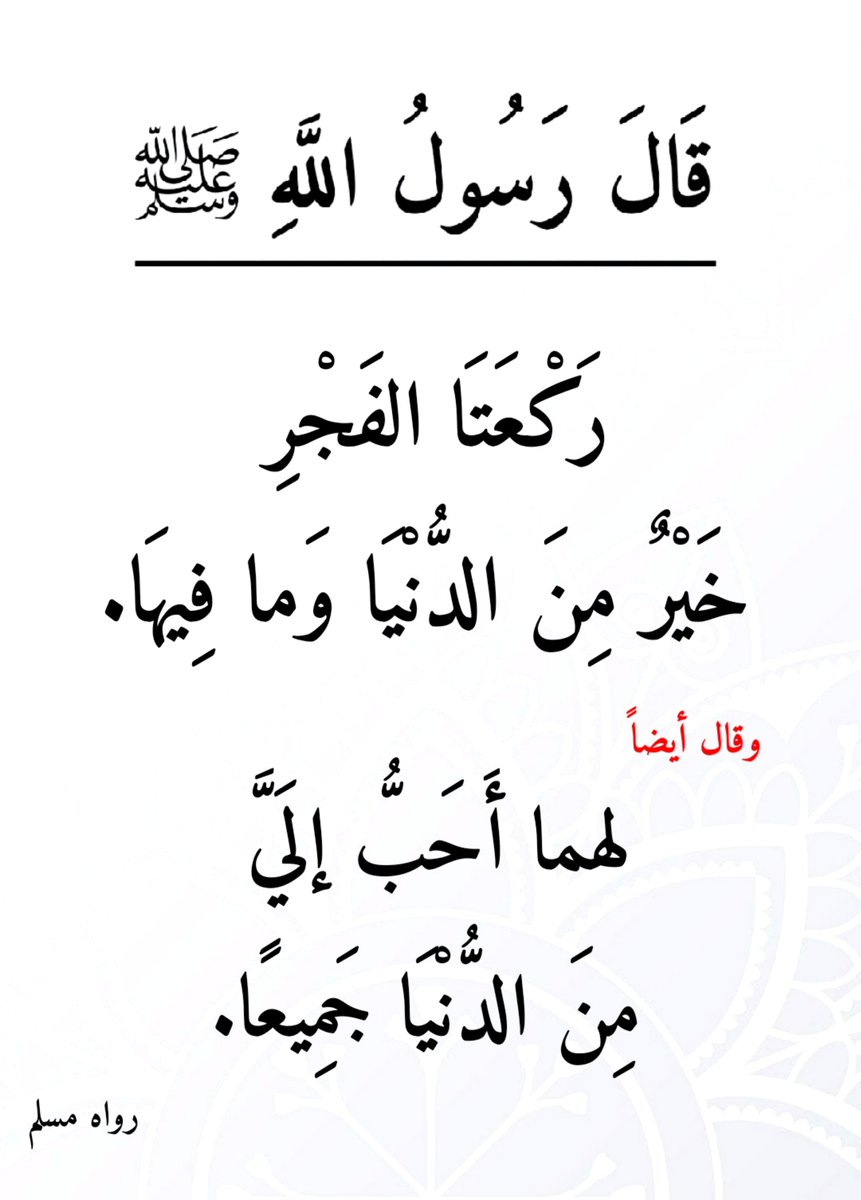 قَالَ رَسُولُ اللَّهِ ﷺ
رَكْعَتَا الفَجْرِ
خَيْرٌ مِنَ الدُّنْيَا وَما فِيهَا.
وقال أيضاً
لهما أَحَبُّ إلَيَّ
مِنَ الدُّنْيَا جَمِيعًا.
رواه مسلم